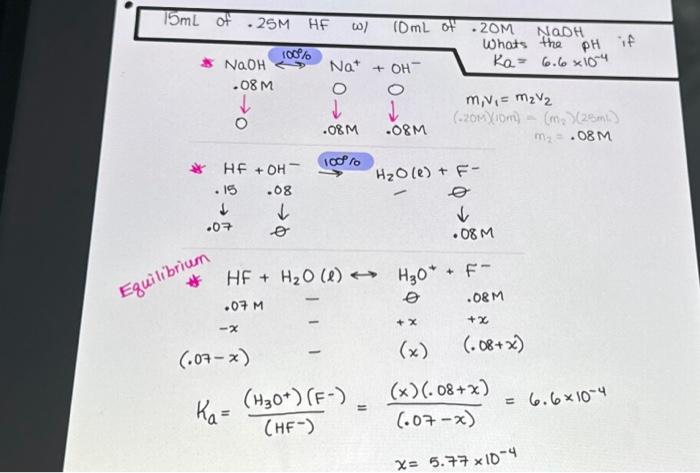 15mL of .25M HF w/ 10mL of .20M NaOH
Whats the pH if
Ka = 6.6 x10⁻⁴
* NaOH <-100%-> Na⁺ + OH⁻
.08M O O
↓ ↓ ↓
O .08M .08M
m₁V₁ = m₂V₂
(.20M)(10m) = (m₂)(25mL)
m₂ = .08M
* HF + OH⁻ 100% → H₂O(l) + F⁻
.15 .08 – ∅
↓ ↓ ↓
.07 ∅ .08M
Equilibrium
* HF + H₂O (l) ↔ H₃O⁺ + F⁻
.07M – ∅ .08M
-x – +x +x
(.07-x) – (x) (.08+x)
Ka = (H₃O⁺)(F⁻) / (HF⁻) = (x)(.08+x) / (.07-x) = 6.6x10⁻⁴
x= 5.77 x10⁻⁴